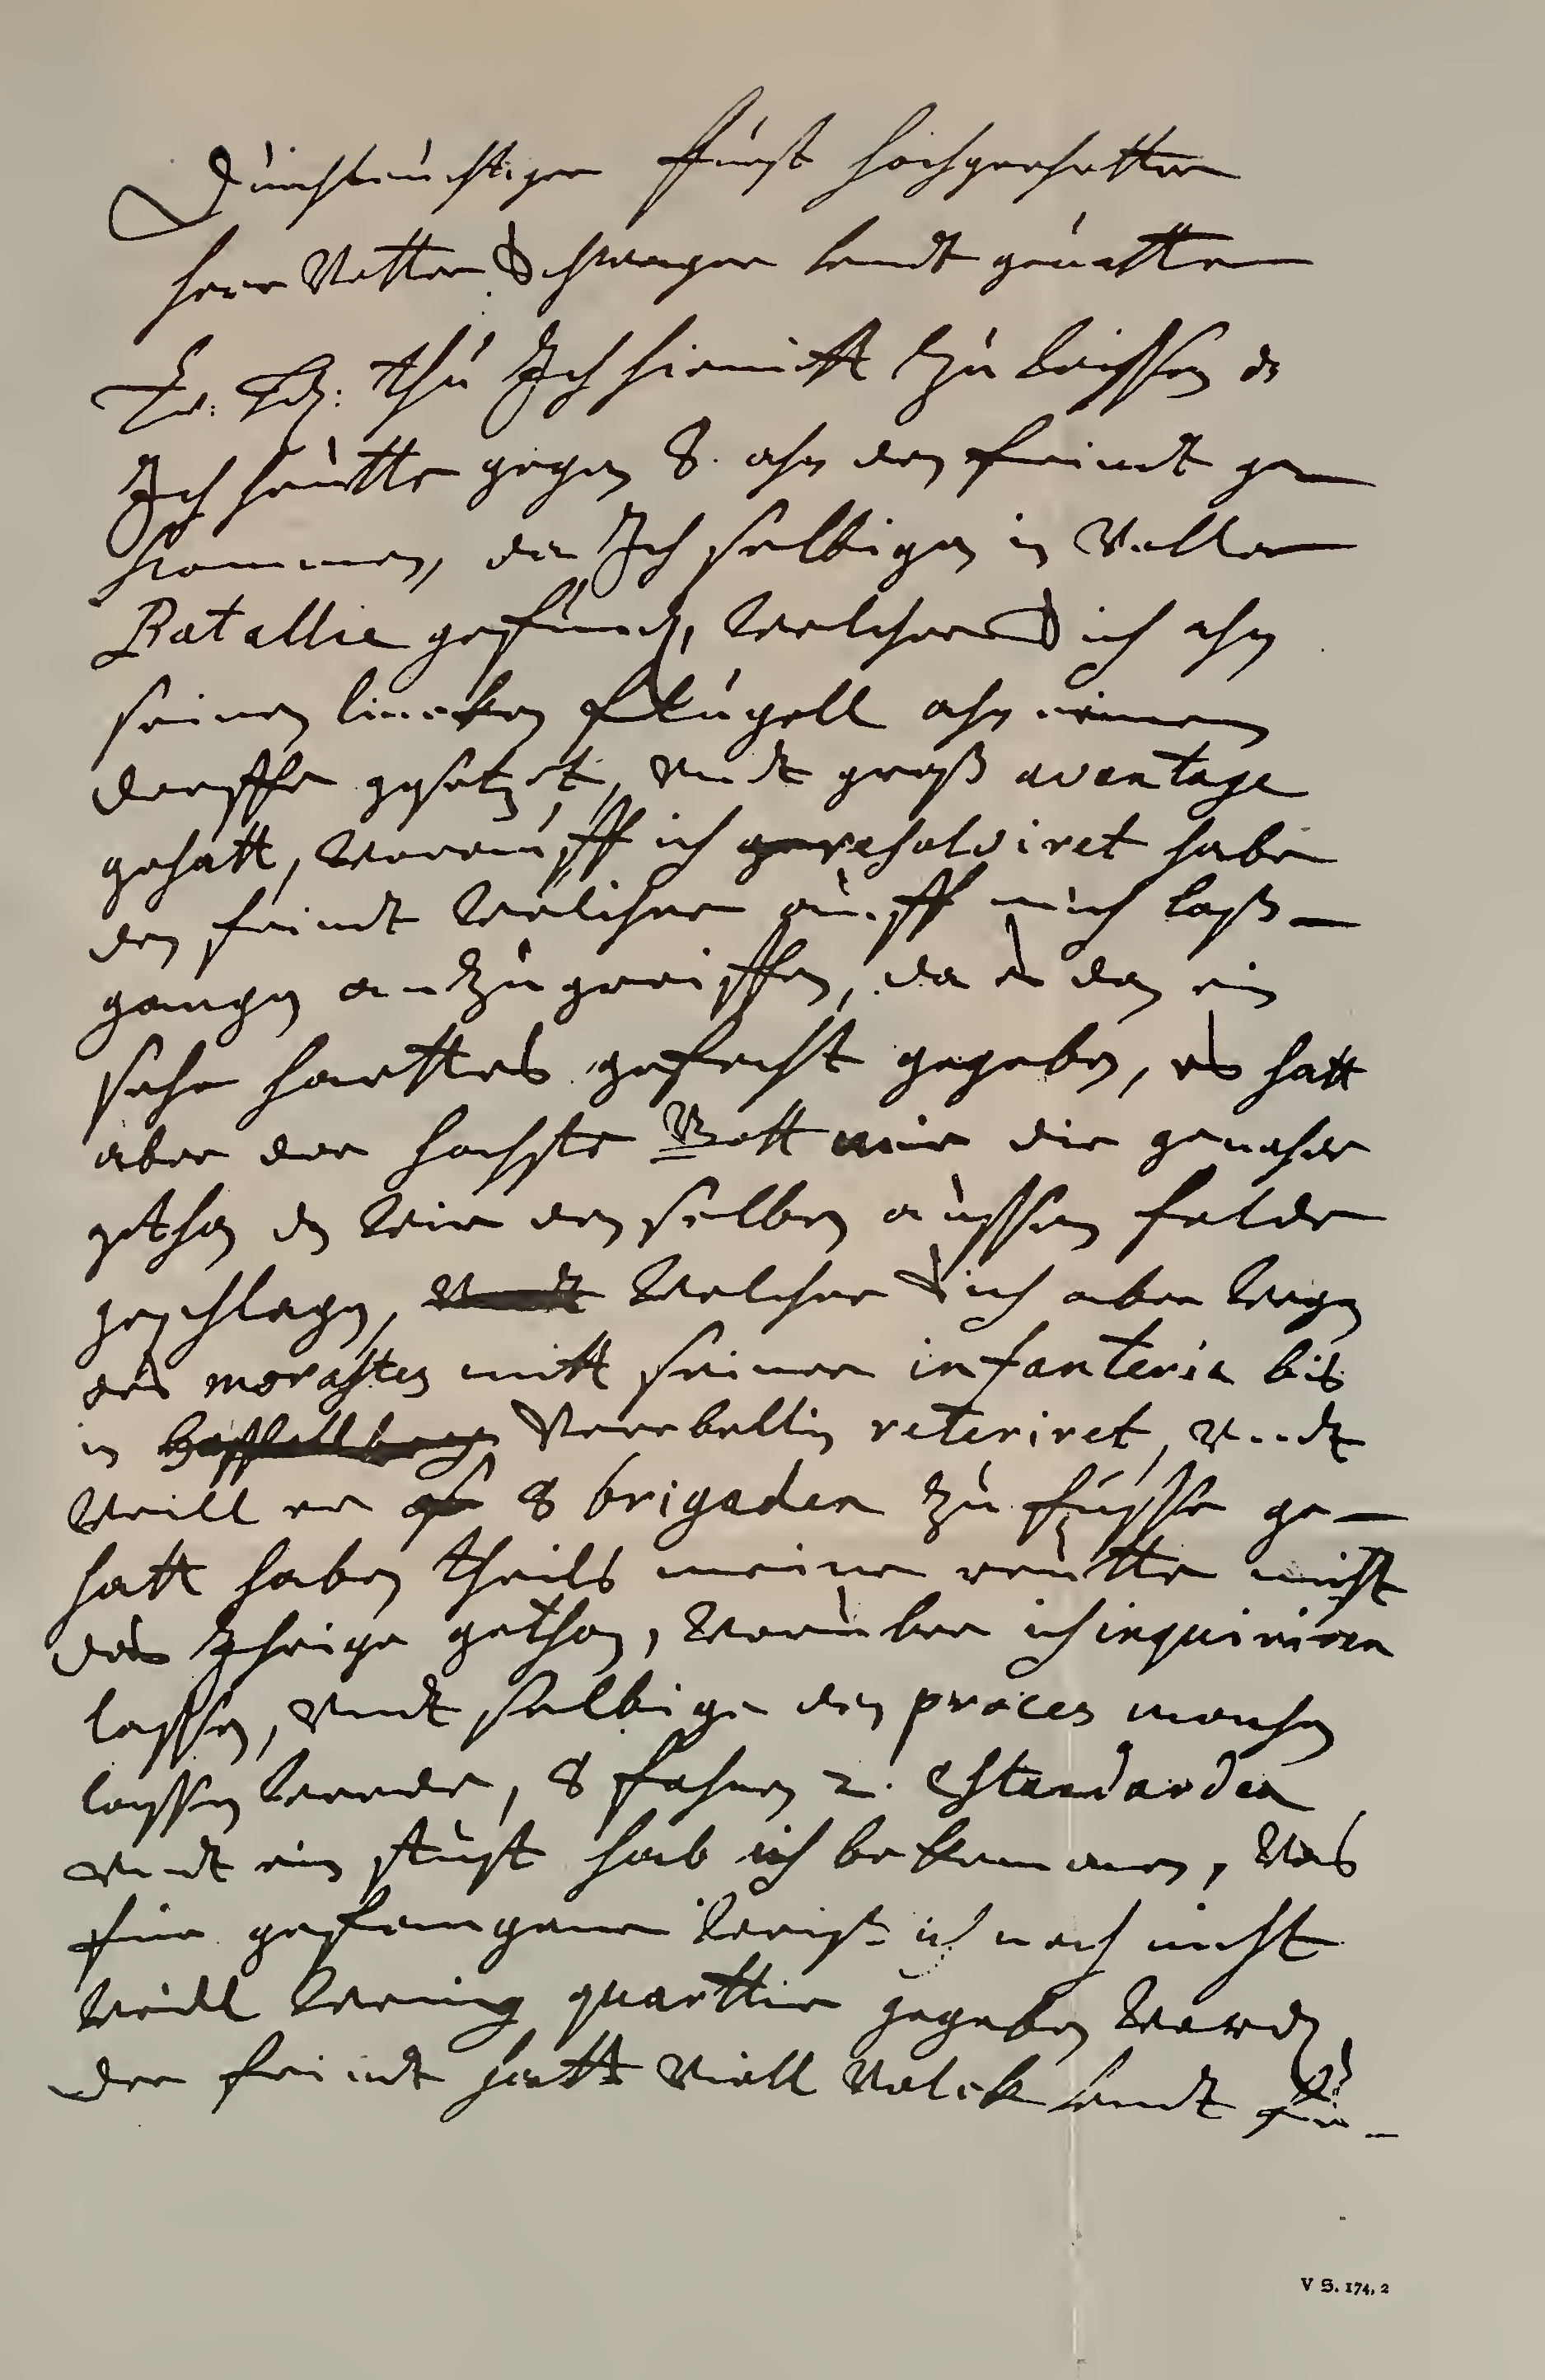 Durchleuchtiger Furst hochgeehrtter
herr Vetter Schwager undt gevatter
E. Ld: thu Ich hiemitt zu wissen ds
Ich heutte gegen 8. ahn den feindt ge
kommen, da Ich selbigen in Voller
Batallie gefund, welcher Sich ahn
seinen lincken flugell ahn einem
dorffe gesetzet, undt groß aventage
gehatt, worauff ich resolviret habe
den feindt welcher auff mich loß
gangen anzugreiffen, da es dan ein
sehr harttes gefecht gegeben, es hatt
aber der hochste Gott mir die genade
gethan ds wir den selben aussem felde
geschlagen, welcher Sich aber wegen
des morastes mitt seiner infanteria bis
in Verbellin reteriret, undt
weill er 8 brigaden zu fusse ge-
hatt haben theils meine reutter nicht
das Ihrige gethan, woruber ich inquiriren
lassen, undt selbige den proces machen
lassen werde, 8 fahnen 2. estandarden
undt ein stuck hab ich bekommen, was
fur gefangene weiß ich noch nicht
weill wenig quarttir gegeben word,
der feindt hatt viell Volck undt fur-
V S. 174, 2